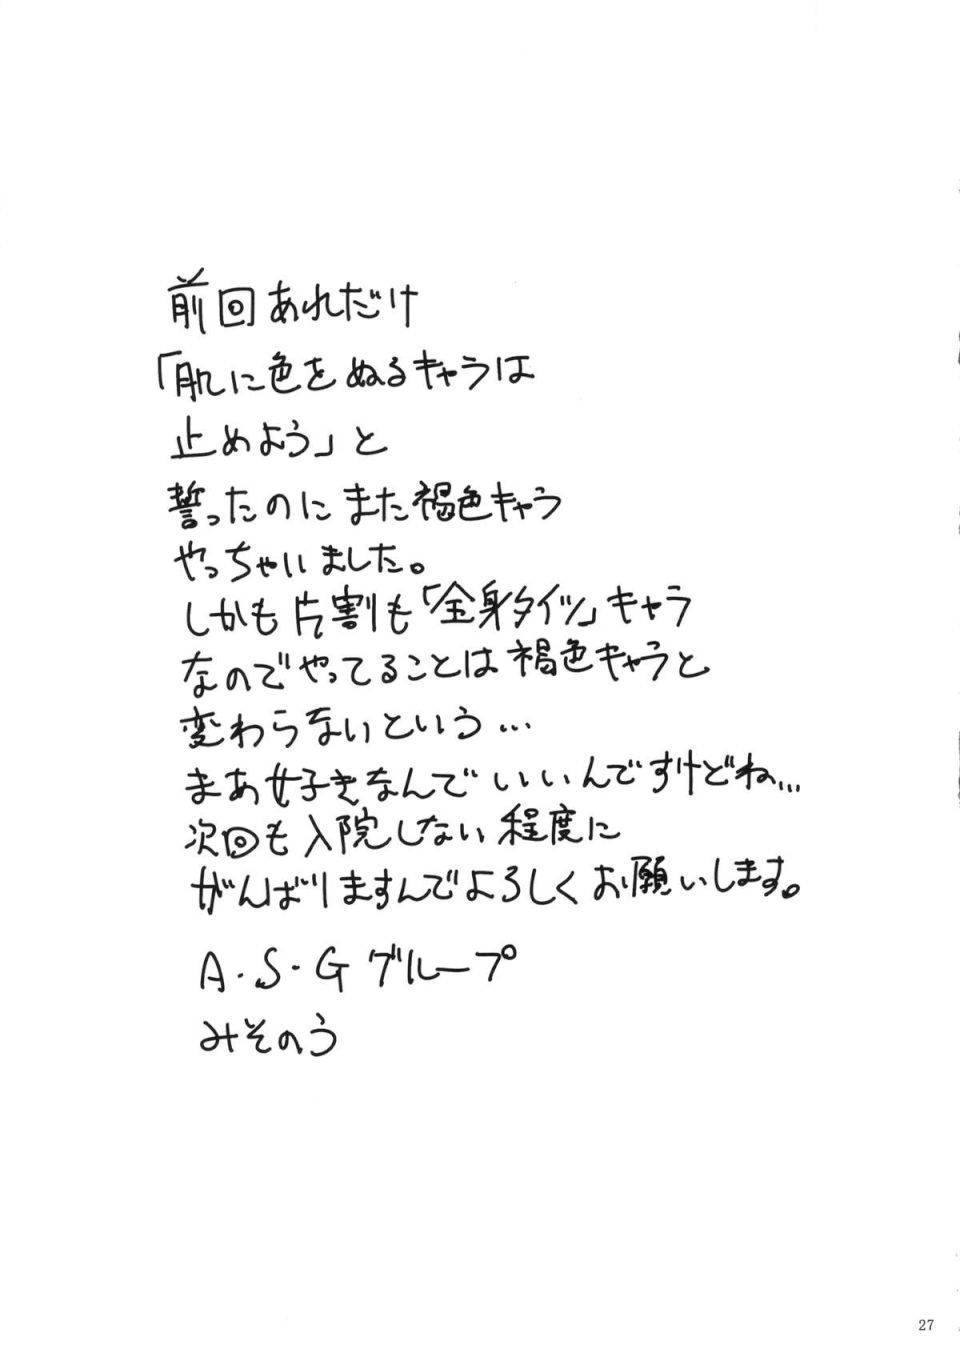 前回あれだけ
「肌に色をぬるキャラは
止めよう」と
誓ったのにまた褐色キャラ
やっちゃいました。
しかも片割も「全身タイツ」キャラ
なのでやってることは褐色キャラと
変わらないという…
まあ好きなんでいいんですけどね…
次回も入院しない程度に
がんばりますんでよろしくお願いします。
A・S・Gグループ
みそのう
27